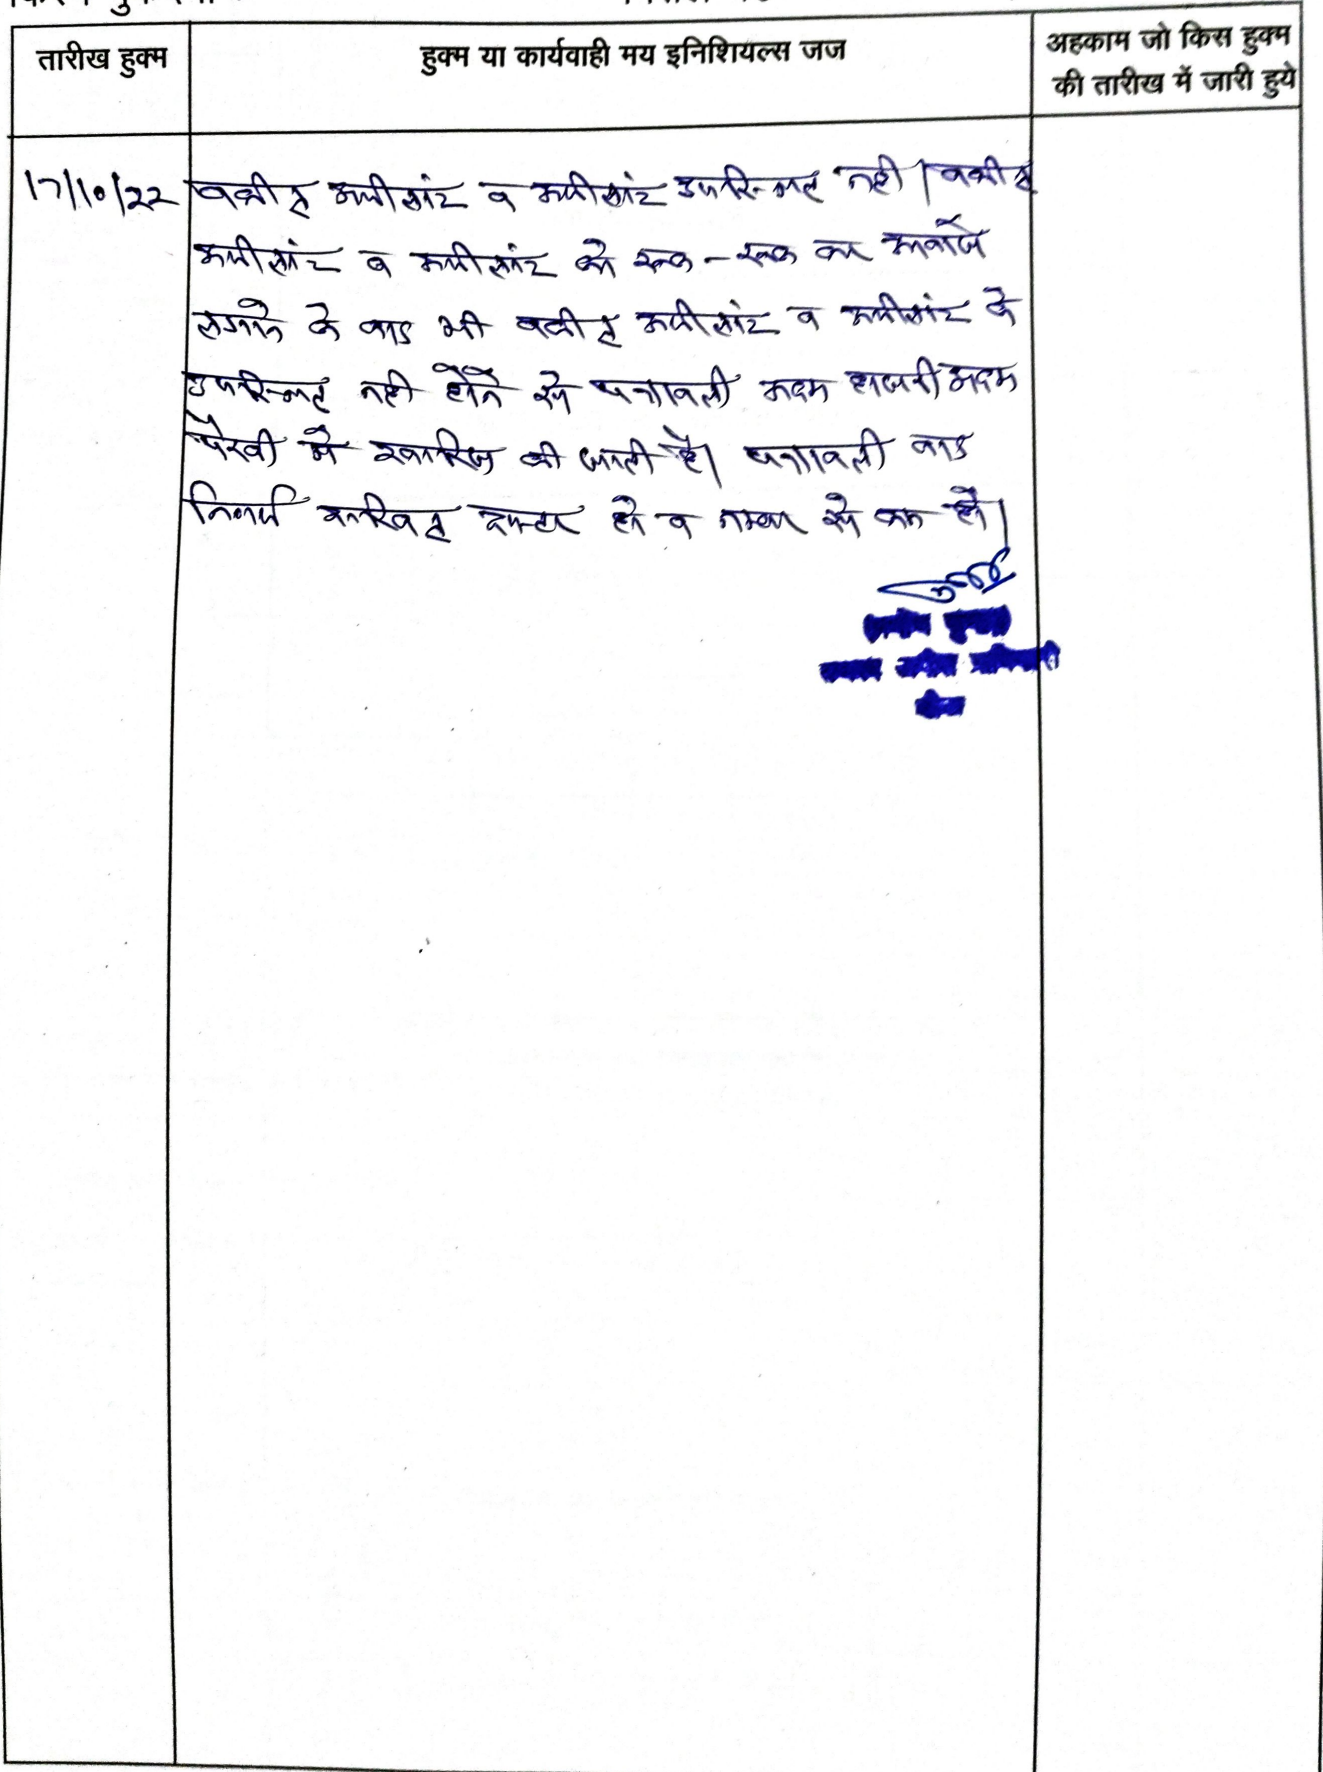 तारीख हुक्म
हुक्म या कार्यवाही मय इनिशियल्स जज
अहकाम जो किस हुक्म
की तारीख में जारी हुये
17/10/22
वकील अपीलांट व अपीलांट उपस्थित नही। वकील
अपीलांट व अपीलांट को रूक-रूक कर आवाजे
लगाने के बाद भी वकील अपीलांट व अपीलांट के
उपस्थित नही होने से पत्रावली अदम हाजरी अदम
पैरवी मे खारिज की जाती है। पत्रावली बाद
निर्णय दाखिल दफ्तर हो व नम्बर से कम हो।